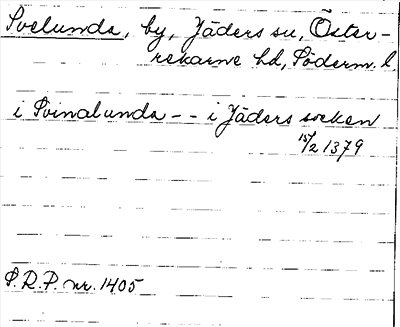 Svelunda, by, Jäders sn, Öster-
rekarne hd, Söderm. l
i Svinalunda -- i Jäders socken
15/2 1379
S.R.P. nr. 1405